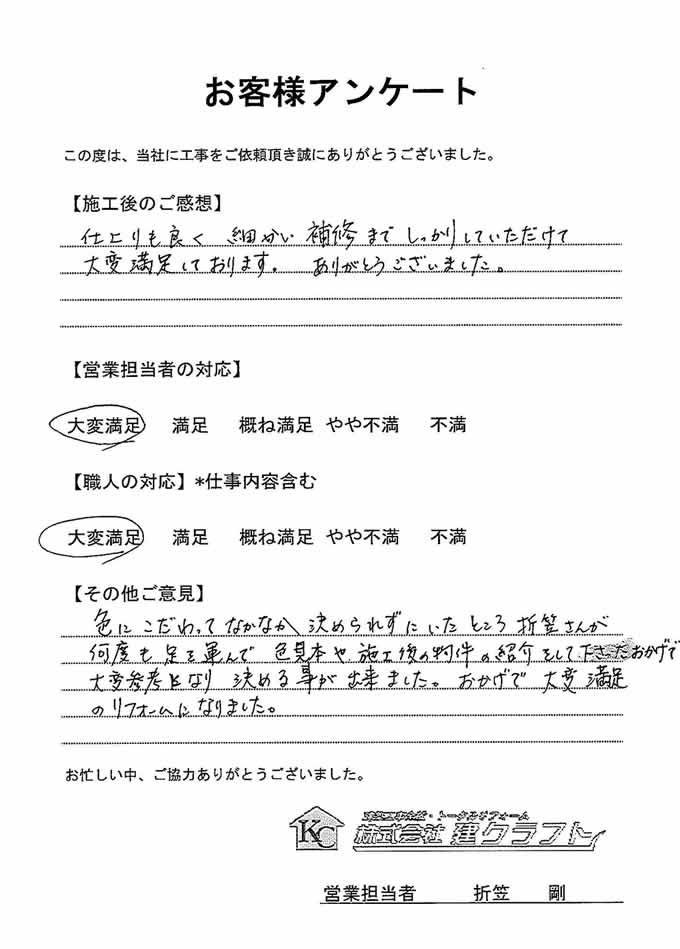 お客様アンケート
この度は、当社に工事をご依頼頂き誠にありがとうございました。
【施工後のご感想】
仕上りも良く 細かい補修までしっかりしていただけて
大変満足しております。 ありがとうございました。
【営業担当者の対応】
大変満足 満足 概ね満足 やや不満 不満
【職人の対応】*仕事内容含む
大変満足 満足 概ね満足 やや不満 不満
【その他ご意見】
色にこだわってなかなか決められずにいたところ折笠さんが
何度も足を運んで 色見本や施工後の物件の紹介をして下さったおかげで
大変参考となり 決める事が出来ました。おかげで 大変満足
のリフォームになりました。
お忙しい中、ご協力ありがとうございました。
KC
株式会社 建クラフト
営業担当者 折笠 剛